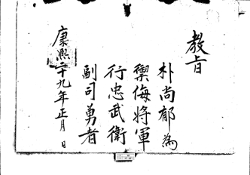 教旨
朴尚郁為
禦侮將軍
行忠武衛
副司勇者
康熙二十九年正月　日